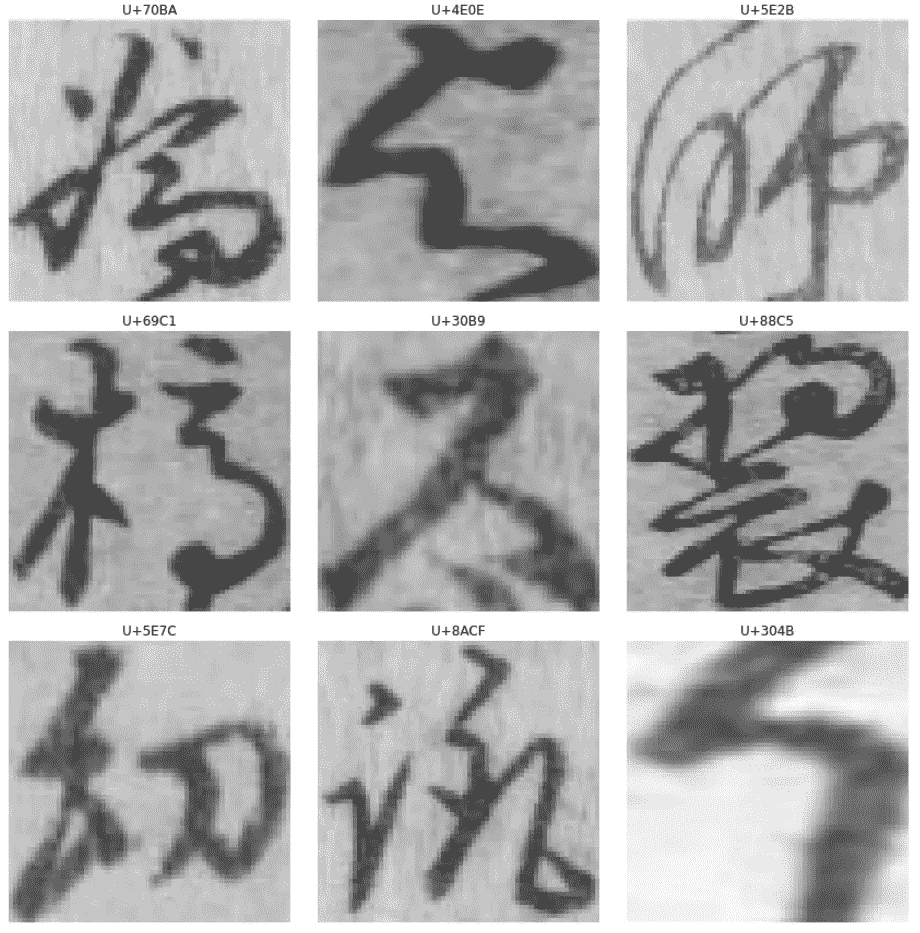 U+70BA U+4E0E U+5E2B
為 与 師
U+69C1 U+30B9 U+88C5
槁 ス 装
U+5E7C U+8ACF U+304B
幼 諏 か